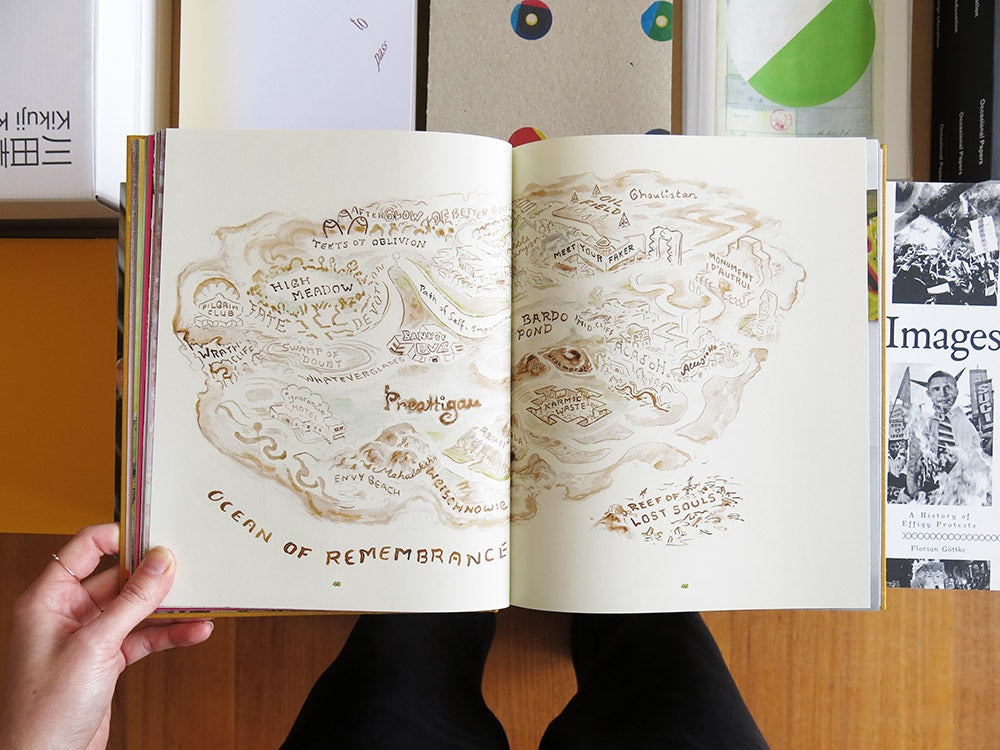 川田
Kikuji K
to
Occasional Papers
Occasional Papers
Occasional Papers
AFTERGLOW
OF BETTER
TEETS OF OBLIVION
HIGH
MEADOW
FATE
DEVOTION
Path of Self-Empow
PILGRIM
CLUB
WRATH
CLIFF
SWAMP OF
DOUBT
WHATEVERGLADES
HOTEL
Preattigau
ENVY BEACH
WEISCHNOWIE
OCEAN OF REMEMBRANCE
60
Ghoulistan
OIL
FIELD
MEET YOUR FAKER
MONUMENT
D'AUTRUI
BARDO
POND
KARMIC
WASTE
REEF OF
LOST SOULS
Images
A History of
Effigy Protests
XXXXXXXXXXXXXXX
Florian Göttke